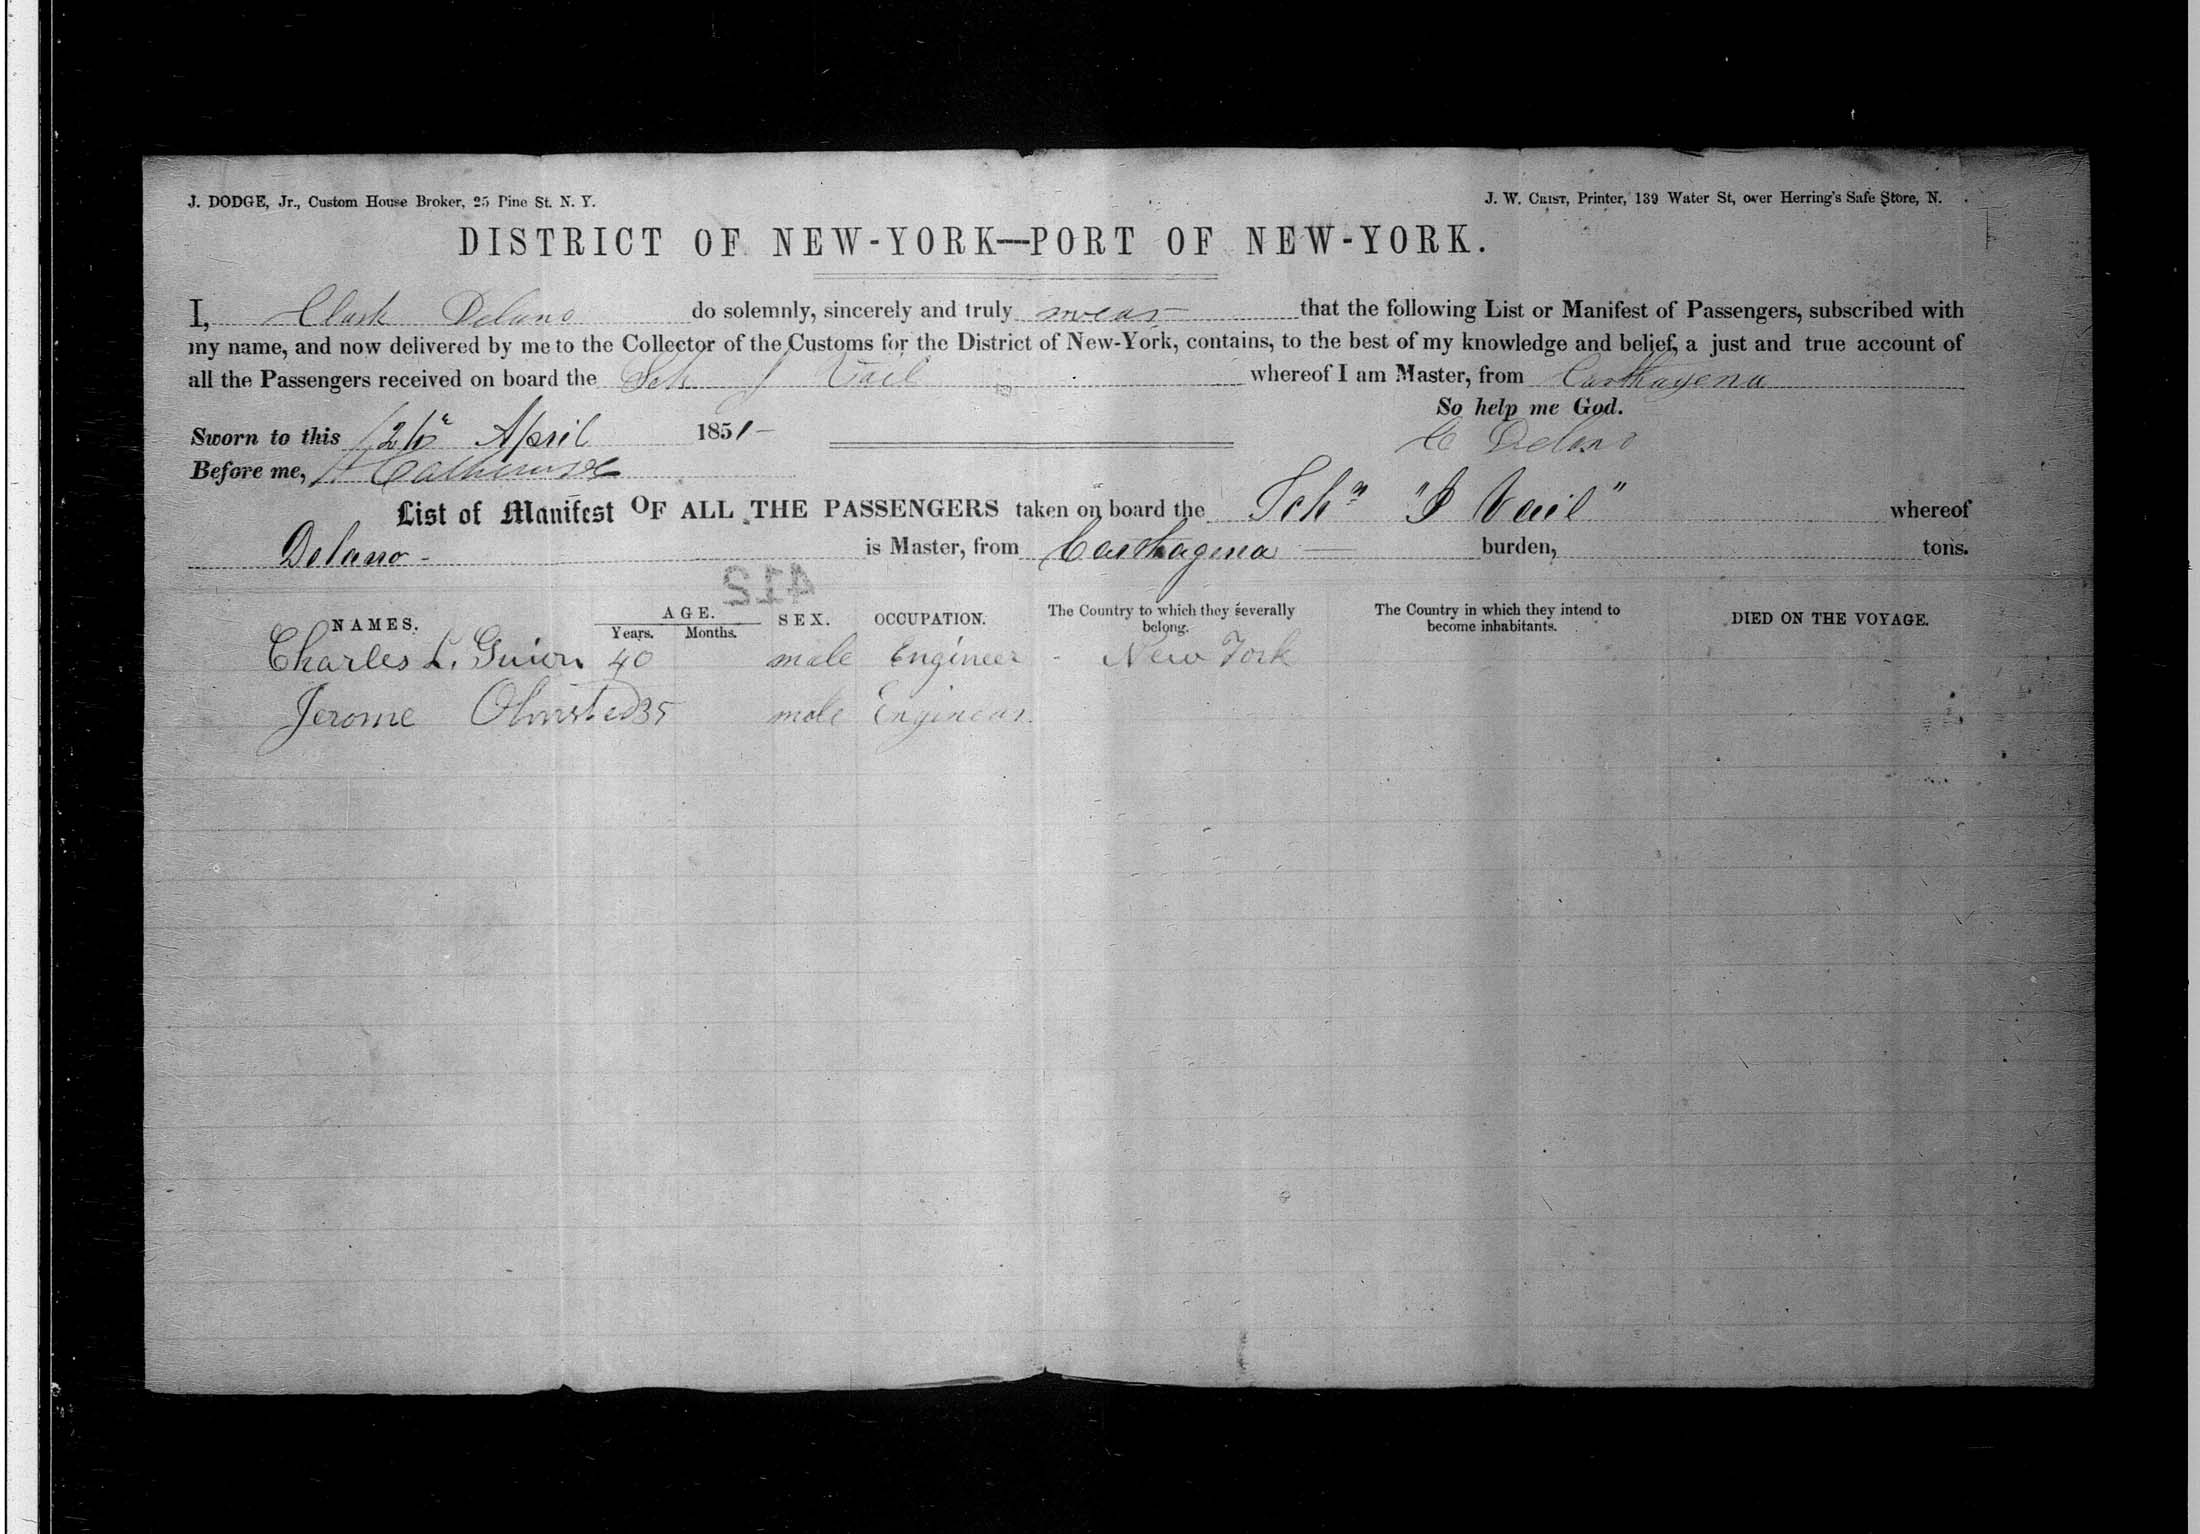 J. DODGE, Jr., Custom House Broker, 25 Pine St. N. Y.
J. W. CRIST, Printer, 139 Water St, over Herring's Safe Store, N.
DISTRICT OF NEW-YORK—PORT OF NEW-YORK.
I, Clark Delano do solemnly, sincerely and truly swear that the following List or Manifest of Passengers, subscribed with
my name, and now delivered by me to the Collector of the Customs for the District of New-York, contains, to the best of my knowledge and belief, a just and true account of
all the Passengers received on board the Sch J Vail whereof I am Master, from Carthagena
So help me God.
Sworn to this April 1851-
C Delano
Before me,
List of Manifest OF ALL THE PASSENGERS taken on board the Schr "J Vail" whereof
Delano - is Master, from Carthagena — burden, tons.
412
NAMES. AGE. SEX. OCCUPATION. The Country to which they severally belong. The Country in which they intend to become inhabitants. DIED ON THE VOYAGE.
Years. Months.
Charles L. Guion 40 male Engineer - New York
Jerome Olmsted 35 male Engineer